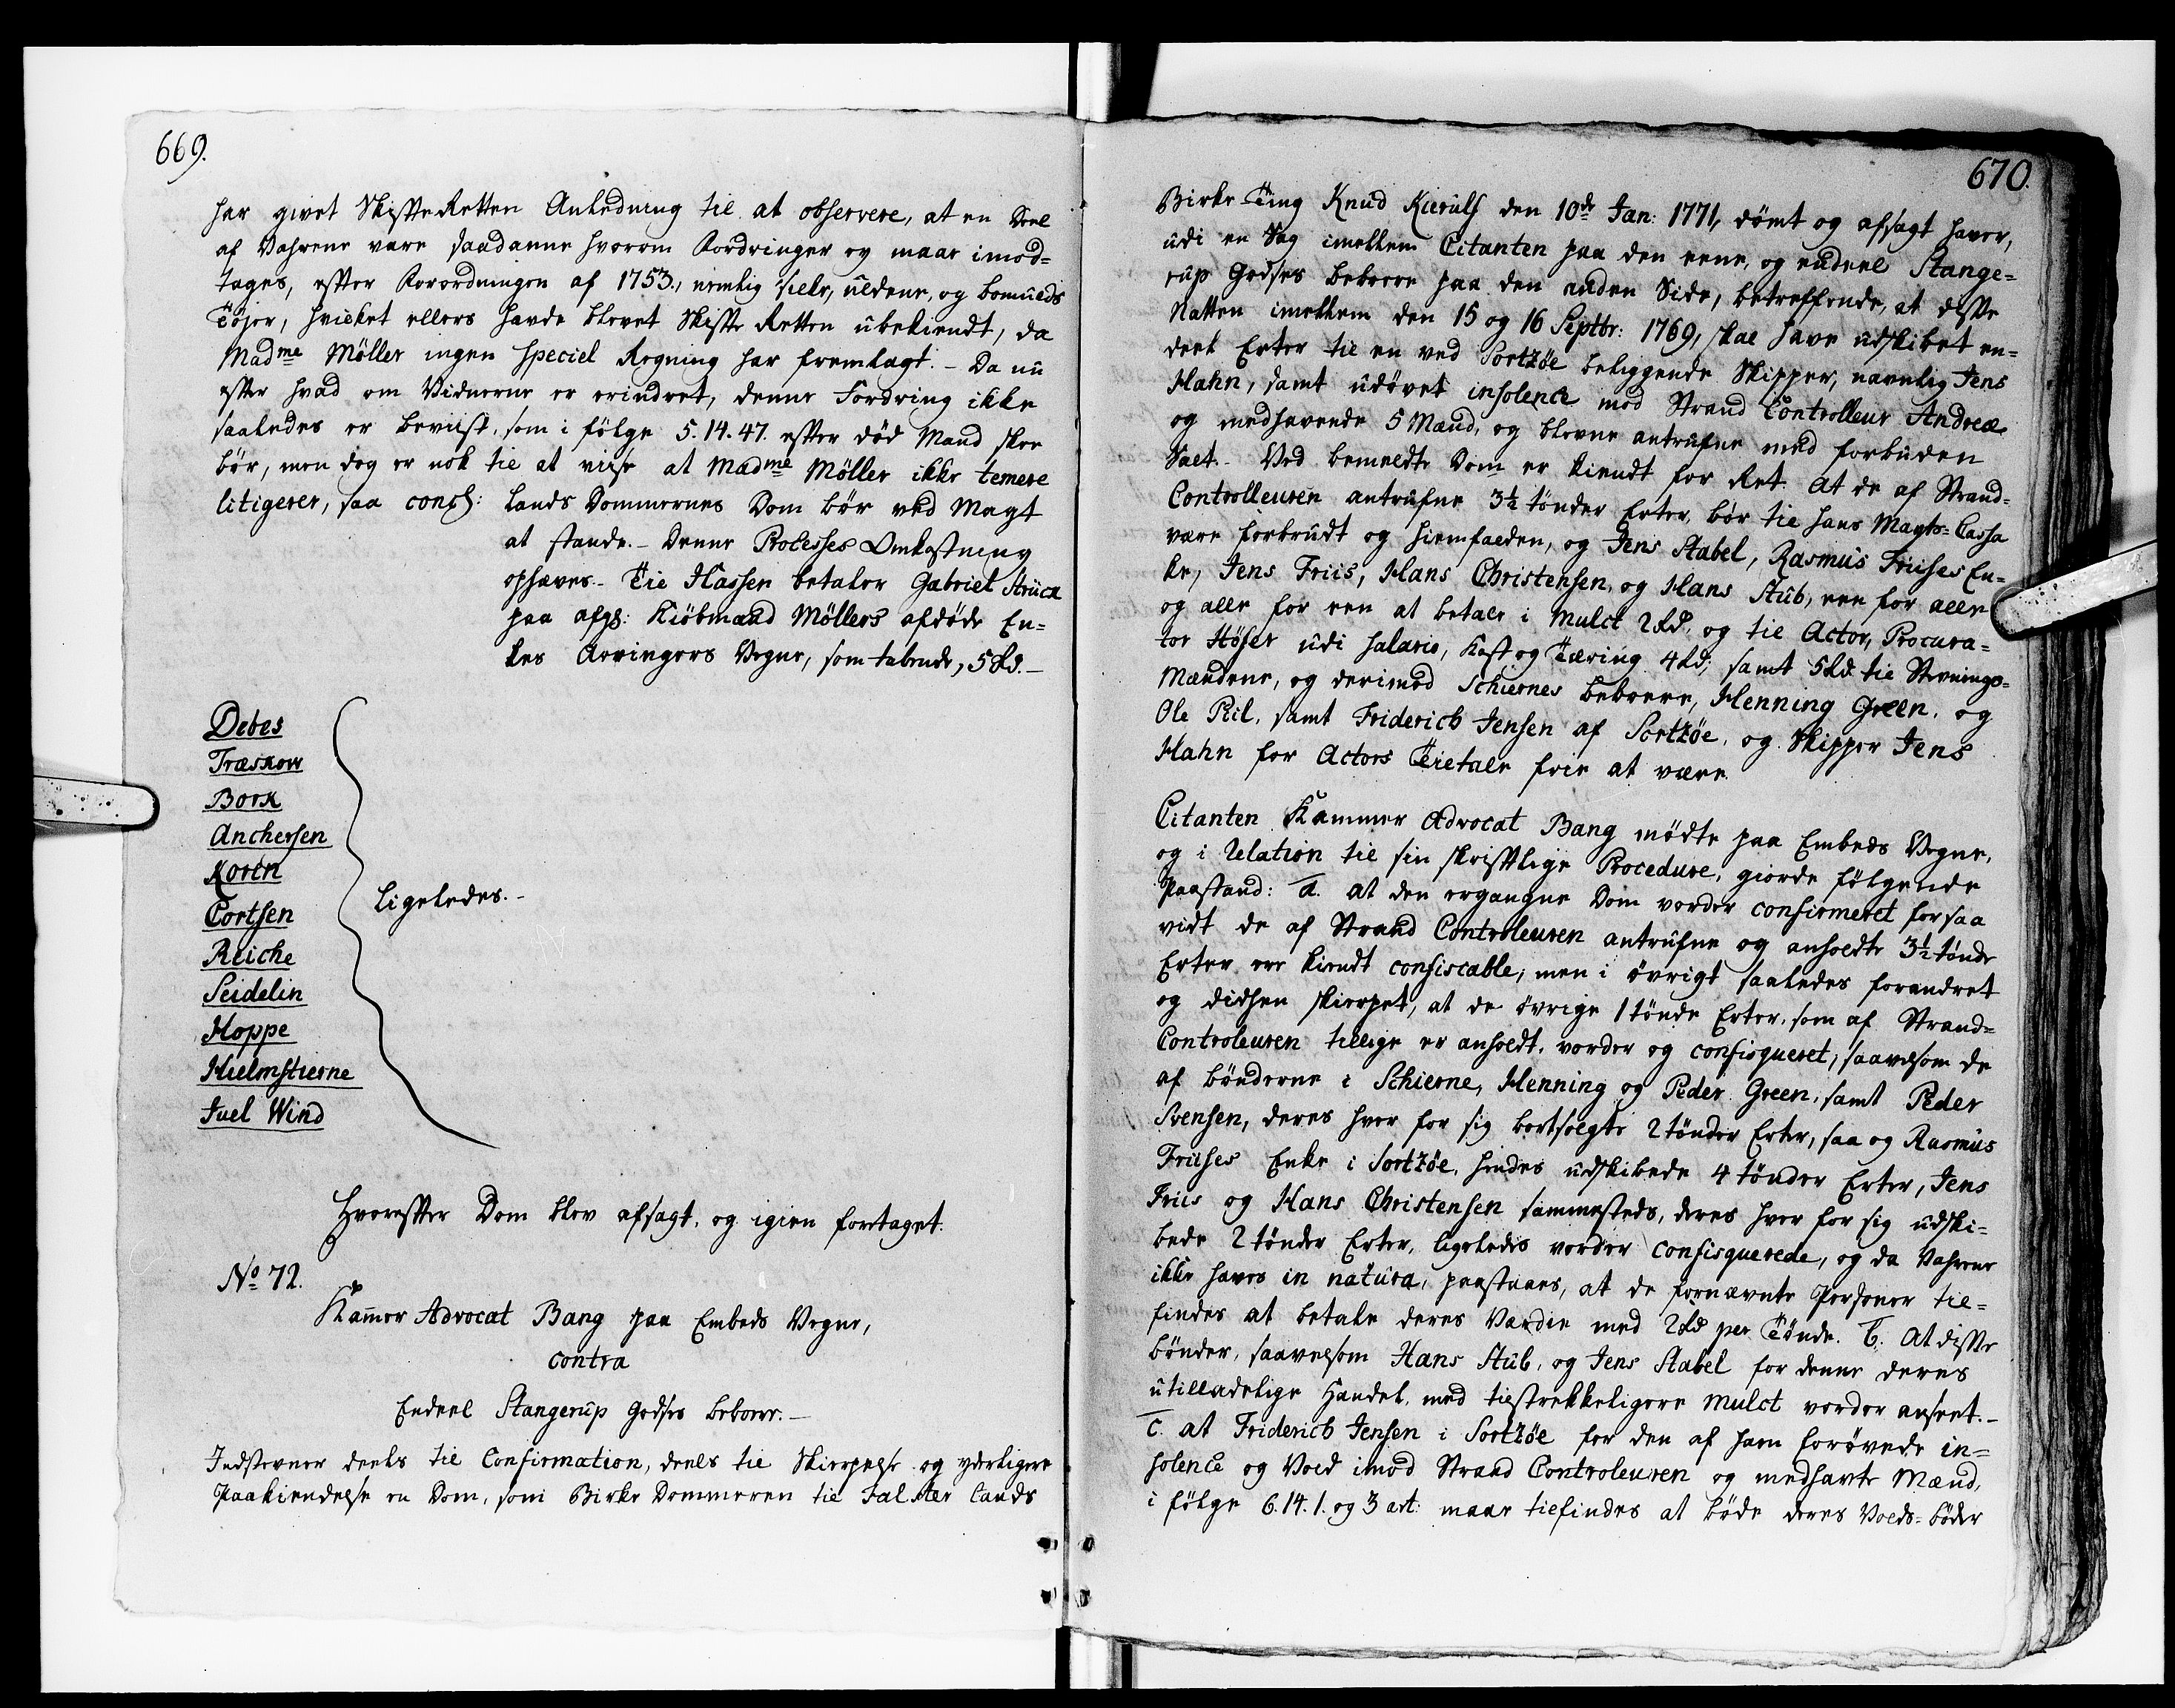 669.
har givet Skifte Retten Anledning til at observere, at en Deel
af Vahrene vare saadanne hvorom Fordringer ey maae imod-
tages, efter Forordningen af 1753., nemlig Silke, uldene, og bomulds
Tøjer, hvilket ellers havde blevet Skifte Retten ubekiendt, da
Madme Möller ingen speciel Regning har fremlagt. - Da nu
efter hvad om Vidnerne er erindret, denne Fordring ikke
saaledes er beviist, som i følge 5.14.47. efter død Mand skee
bør, men dog er nok til at viise at Madme Möller ikke temere
litigerer, saa concl: Lands Dommernes Dom bør ved Magt
at stande. - Denne Processes Omkostning
ophæves. - Til Kassen betaler Gabriel Strück
paa afg: Kiöbmand Möllers afdøde En-
kes Arvingers Vegne, som tabende, 5 Rd. -
Debes
Træskow
Bork
Anchersen
Koren
Cortsen
Reiche
Seidelin
Hoppe
Hielmstierne
Juel Wind
ligeledes. -
Hvorefter Dom blev afsagt, og igien foretaget.
No 72.
Kamer Advocat Bang paa Embeds Vegne,
contra
Endeel Stangerup Godses beboere. -
Indstevner deels til Confirmation, deels til Skierpelse og yderligere
Paakiendelse en Dom, som Birke Dommeren til Falster Lands
670.
Birke Ting Knud Kierulf den 10de Jan: 1771, dömt og afsagt haver,
udi en Sag imellem Citanten paa den eene, og endeel Stange-
rup Godses beboere paa den anden Side, betreffende, at disse
Natten imellem den 15 og 16 Septbr: 1769, skal have udskibet en-
deel Erter til en ved Sortzöe beliggende Skipper, navnlig Jens
Hahn, samt udövet insolence mod Strand Controlleur Andreæ
og medhavende 5 Mænd, og blevne antrufne med forbuden
Salt. - Ved bemeldte Dom er kiendt for Ret. At de af Strand-
Controlleuren antrufne 3½ tönder Erter, bör til hans Mayts- Cassa
være forbrudt og hiemfalden, og Jens Stabel, Rasmus Friises En-
ke, Jens Friis, Hans Christensen, og Hans Stub, een for alle
og alle for een at betale i Mulct 2 Rd, og til Actor, Procura-
tor Höjer udi Salario, Kost og Tæring 4 Rd, samt 5 Rd til Stevnings-
Mændene, og derimod Schiernes beboere, Henning Green, og
Ole Piil, samt Friderich Jensen af Sortzöe, og Skipper Jens
Hahn for Actors Tiltale frie at være
Citanten Kammer Advocat Bang mödte paa Embeds Vegne,
og i Relation til sin skriftlige Procedure, giorde fölgende
Paastand: a. at den ergangne Dom vorder confirmeret forsaa
vidt de af Strand Controleuren antrufne og anholdte 3½ tönde
Erter ere kiendt confiscable; men i övrigt saaledes forandret
og didhen skierpet, at de övrige 1 tönde Erter, som af Strand-
Controleuren tillige er anholdt, vorder og confisqueret, saavelsom de
af bönderne i Schierne, Henning og Peder Green, samt Peder
Svensen, deres hver for sig bortsolgte 2 tönder Erter, saa og Rasmus
Friises Enke i Sortzöe, hendes udskibede 4 tönder Erter, Jens
Friis og Hans Christensen sammesteds, deres hver for sig udski-
bede 2 tönder Erter, ligeledes vorder confisquerede, og da Vahrene
ikke haves in natura, paastaaes, at de fornævnte Personer til-
findes at betale deres Værdie med 2 Rd per Tönde. b. At disse
bönder, saavelsom Hans Stub, og Jens Stabel for denne deres
utilladelige Handel, med tilstrekkeligere Mulct vorder anseet. -
c. at Friderich Jensen i Sortzöe for den af ham forövede in-
solence og Vold imod Strand Controleuren og medhavte Mænd,
i fölge 6.14.1. og 3 art: maae tilfindes at böde deres Volds-böder